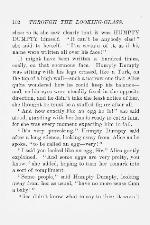 112 THROUGH THE LOOKING-GLASS.
close to it, she saw clearly that it was HUMPTY
DUMPTY himself. "It can't be anybody else!"
she said to herself. "I'm certain of it, as if his
name were written all over his face!"
It might have been written a hundred times,
easily, on that enormous face. Humpty Dumpty
was sitting with his legs crossed, like a Turk, on
the top of a high wall—such a narrow one that Alice
quite wondered how he could keep his balance—
and, as his eyes were steadily fixed in the opposite
direction, and he didn't take the least notice of her,
she thought he must be a stuffed figure after all.
"And how exactly like an egg he is!" she said
aloud, standing with her hands ready to catch him,
for she was every moment expecting him to fall.
"It's very provoking," Humpty Dumpty said
after a long silence, looking away from Alice as he
spoke, "to be called an egg—very!"
"I said you looked like an egg, Sir," Alice gently
explained. "And some eggs are very pretty, you
know," she added, hoping to turn her remark into
a sort of compliment.
"Some people," said Humpty Dumpty, looking
away from her as usual, "have no more sense than
a baby!"
Alice didn't know what to say to this: it wasn't